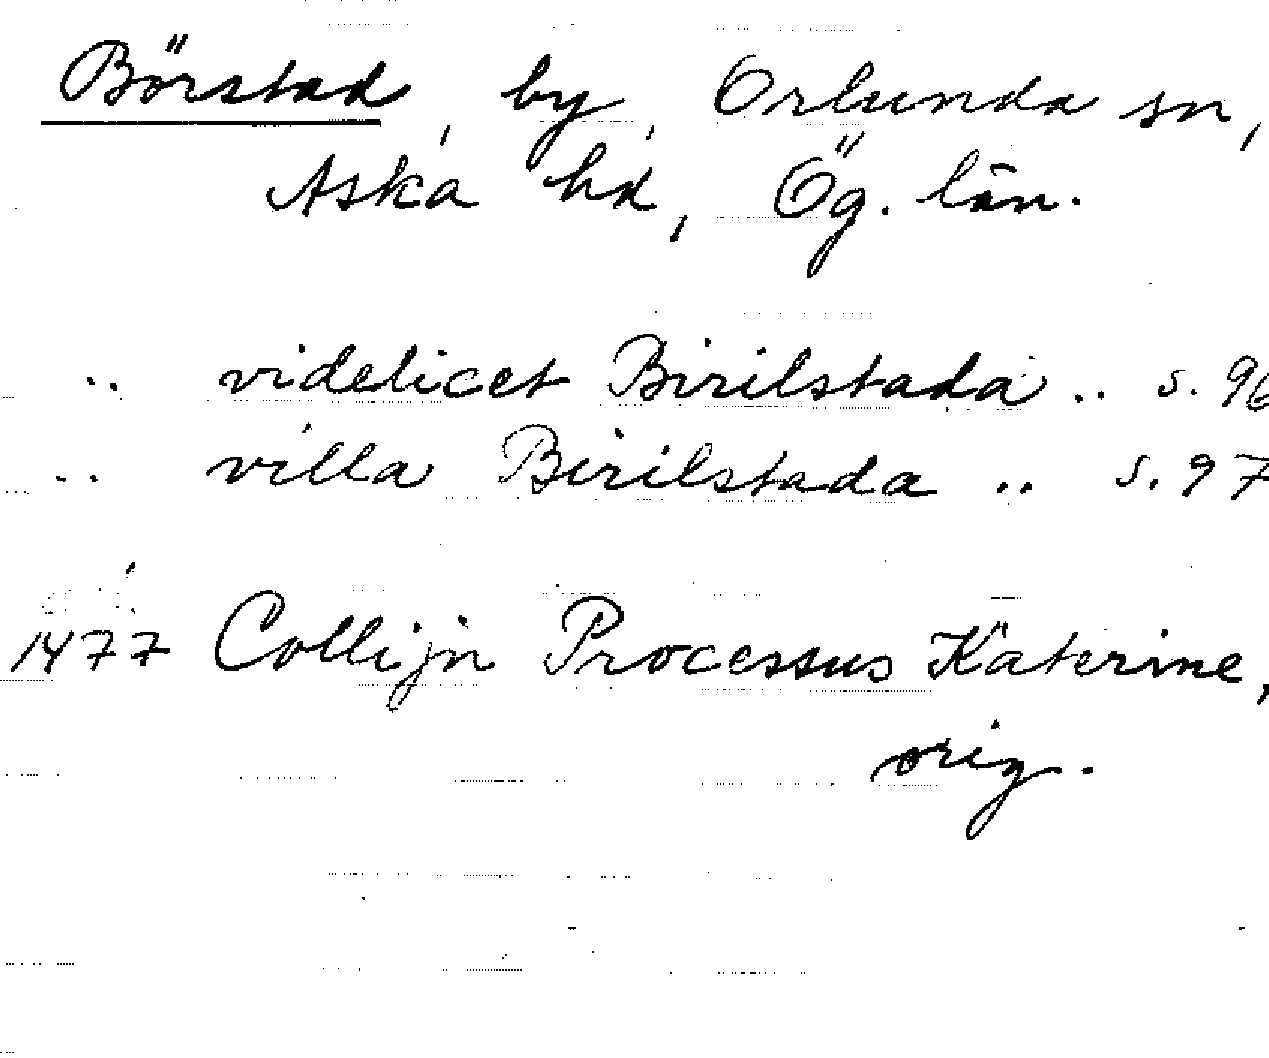 Börstad, by, Orlunda sn,
Aska hd, Ög. län.
.. videlicet Birilstada .. s. 96
.. villa Birilstada .. s. 97
1477 Collijn Processus Katerine,
orig.